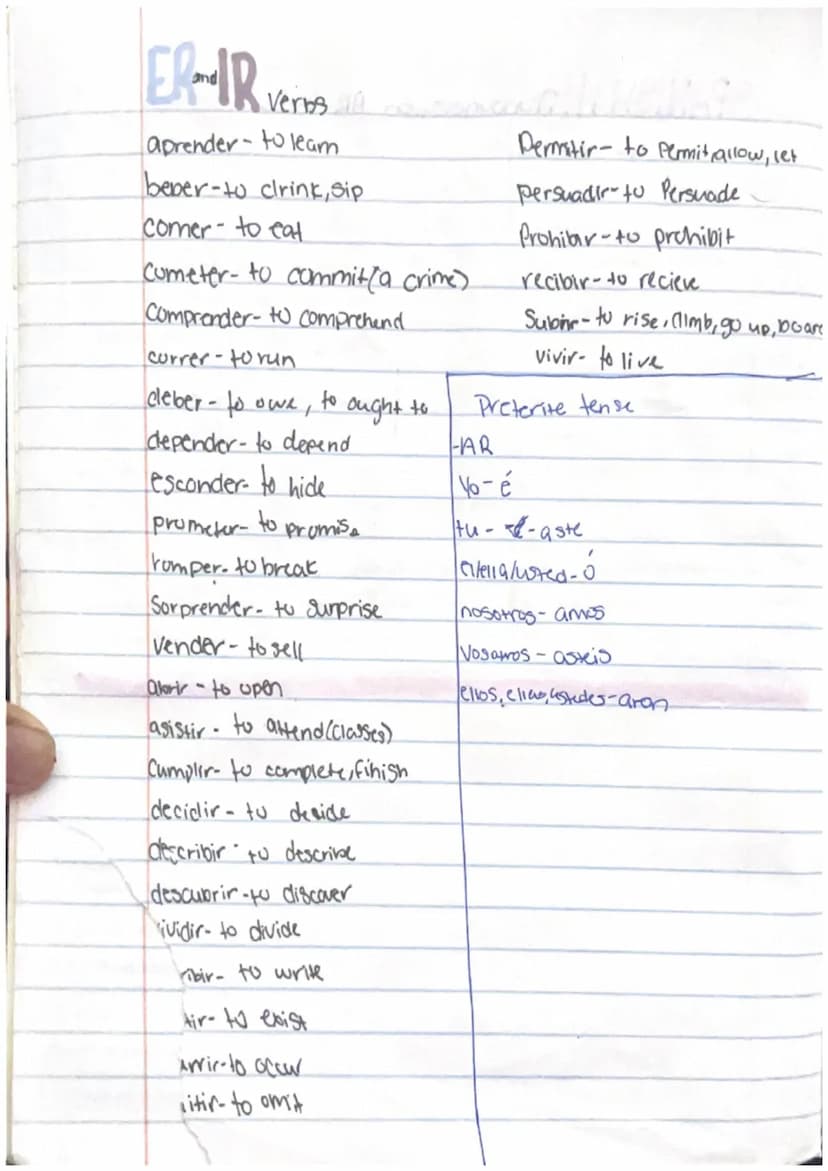 ER and IR verbs
aprender - to learn
beber - to drink, sip
comer - to eat
cometer - to commit (a crime)
comprender - to comprehend
correr - to run
deber - to owe, to ought to
depender - to depend
esconder - to hide
prometer - to promise
romper - to break
Sorprender - to surprise
Vender - to sell
abrir - to open
asistir - to attend (classes)
Cumplir - to complete, finish
decidir - to decide
describir - to describe
descubrir - to discover
ividir - to divide
ribir - to write
tir - to exist
urrir - to occur
itir - to omit
Permitir - to permit, allow, let
persuadir - to Persuade
Prohibir - to prohibit
recibir - to recieve
Subir - to rise, climb, go up, board
vivir - to live
Preterite tense
-AR
Yo - é
tu - aste
el/ella/usted - ó
nosotros - amos
Vosotros - asteis
ellos, ellas, ustedes - aron